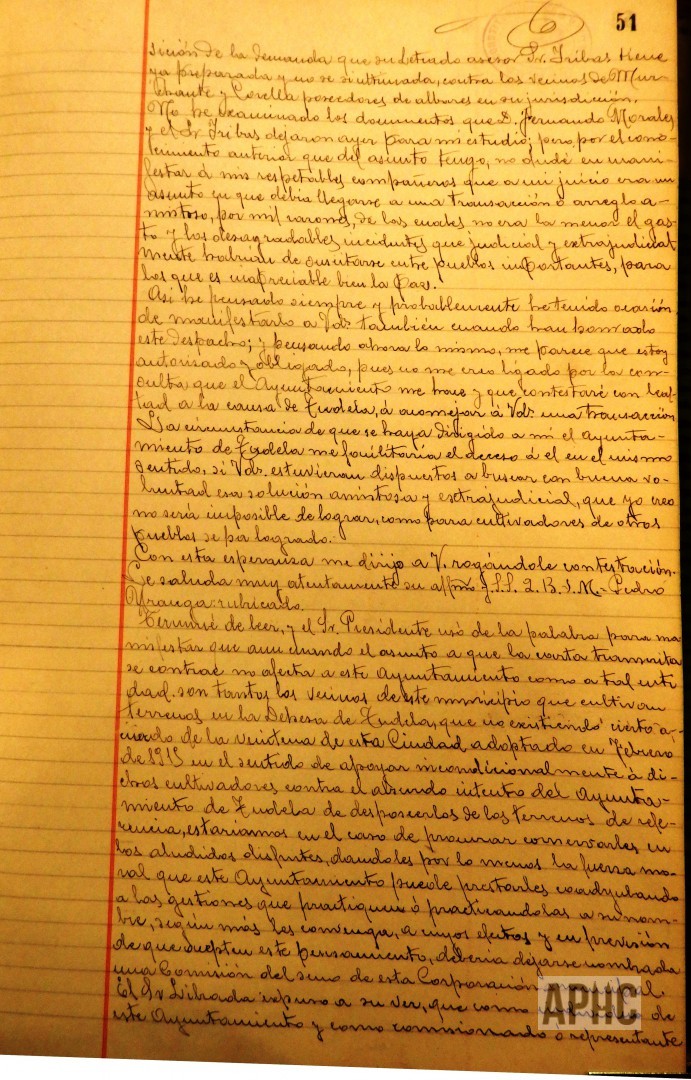 51
sición de la demanda que su letrado asesor Sr. Tribas tiene
ya preparada y no se si ultimada, contra los vecinos de Mur-
chante y Corella poseedores de albares en su jurisdicción.
No he examinado los documentos que D. Fernando Morales
y el Sr. Tribas dejaron ayer para mi estudio; pero, por el cono-
cimiento anterior que del asunto tengo, no dudé en mani-
festar á mis respetables compañeros que a mi juicio era un
asunto en que debía llegarse a una transacción o arreglo a-
mistoso, por mil razones, de las cuales no era la menor el gas-
to y los desagradables incidentes que judicial y extrajudicial
mente habrían de suscitarse entre pueblos importantes, para
los que es inapreciable bien la Paz.
Así he pensado siempre y probablemente he tenido ocasión
de manifestarlo a Vds. también cuando han honrado
este despacho; y pensando ahora lo mismo, me parece que estoy
autorizado y obligado, pues no me creo ligado por la con-
sulta que el Ayuntamiento me hace y que contestaré con leal-
tad a la causa de Tudela, á aconsejar á Vds. una transacción
La circunstancia de que se haya dirigido a mí el Ayunta-
miento de Tudela me facilitaría el acceso á él en el mismo
sentido, si Vds. estuvieran dispuestos a buscar con buena vo-
luntad esa solución amistosa y extrajudicial, que yo creo
no sería imposible de lograr, como para cultivadores de otros
pueblos se ha logrado.
Con esta esperanza me dirijo a V. rogándole contestación.
Le saluda muy atentamente su affmo y S.S. Q.B.S.M.- Pedro
Uranga: rubricado.
Terminé de leer, y el Sr. Presidente usó de la palabra para ma
nifestar que aun cuando el asunto a que la carta transcrita
se contrae no afecta a este Ayuntamiento como a tal enti
dad, son tantos los vecinos de este municipio que cultivan
terrenos en la Dehesa de Tudela, que no existiendo cierto a-
cuerdo de la Veintena de esta Ciudad, adoptado en Febrero
de 1915 en el sentido de apoyar incondicionalmente á di-
chos cultivadores contra el absurdo intento del Ayunta-
miento de Tudela de desposeerlos de los terrenos de refe-
rencia, estaríamos en el caso de procurar conservarles en
los aludidos disfrutes, dándoles por lo menos la fuerza mo-
ral que este Ayuntamiento puede prestarles coadyubando
a las gestiones que practiquen ó practicándolas a su nom-
bre, según más les convenga, a cuyos efectos y en previsión
de que acepten este pensamiento, debería dejarse nombrada
una Comisión del seno de esta Corporación
El Sr Librada expuso a su ver, que como de
este Ayuntamiento y como comisionado o representante
APHC